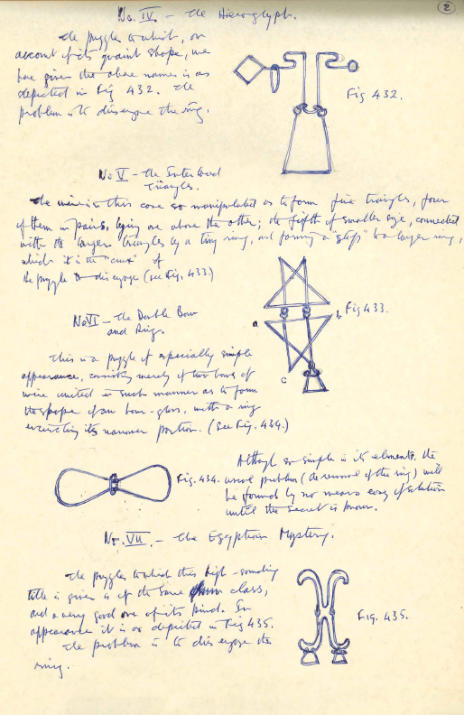 2
No. IV. – The Hieroglyph.
The puzzle to which, on
account of its quaint shape, we
have given the above name is as
depicted in Fig 432. The
problem is to disengage the ring.
Fig 432.
No V – The Interlaced
Triangles.
The wire is this case so manipulated as to form five triangles, four
of them in pairs, lying one above the other; the fifth of smaller size, connected
with the larger triangles by a tiny ring, and forming a "stop" to a larger ring,
which it is the "crux" of
the puzzle to disengage (see Fig. 433)
a
b
c
Fig 433.
No VI – The Double Bow
and Ring.
This is a puzzle of especially simple
appearance, consisting merely of two bows of
wire united in such manner as to form
the shape of an hour-glass, with a ring
encircling its narrower portion. (See Fig. 434.)
Fig. 434.
Although so simple in its elements, the
usual problem (the removal of the ring) will
be found by no means easy of solution
until the secret is known.
No. VII. – The Egyptian Mystery.
The puzzle to which this high-sounding
title is given is of the same class,
and a very good one of its kind. In
appearance it is as depicted in Fig 435.
The problem is to disengage the
ring.
Fig. 435.